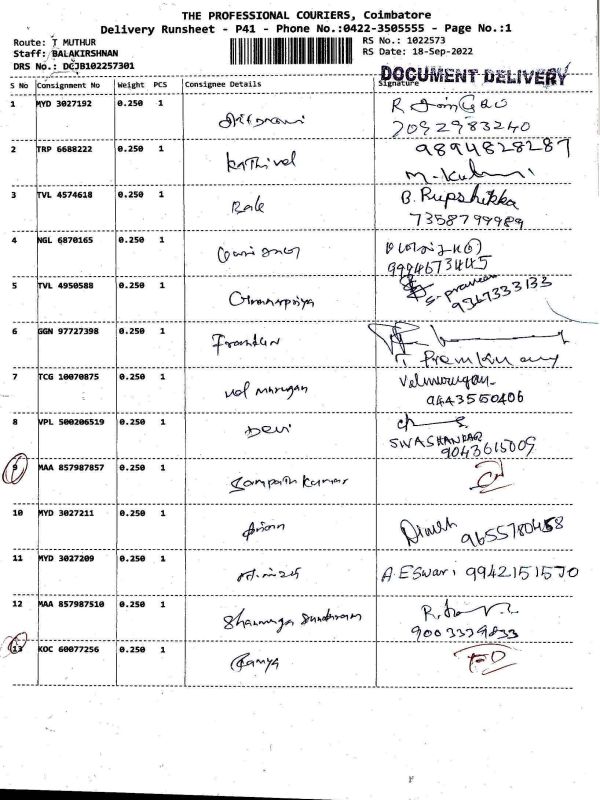 THE PROFESSIONAL COURIERS, Coimbatore
Delivery Runsheet - P41 - Phone No.:0422-3505555 - Page No.:1
Route: T MUTHUR
RS No.: 1022573
Staff: BALAKIRSHNAN
RS Date: 18-Sep-2022
DRS No.: DCJB102257301
DOCUMENT DELIVERY
S No Consignment No Weight PCS Consignee Details Signature
1 MYD 3027192 0.250 1
7092983240
2 TRP 6688222 0.250 1 Kathivel 9894828287
3 TVL 4574618 0.250 1 Bale B. Rupshikka
7358799989
4 NGL 6870165 0.250 1
9994673445
5 TVL 4950588 0.250 1
9367333133
6 GGN 97727398 0.250 1 Franklin
T. Premkumar
7 TCG 10070875 0.250 1 Vel murugan Velmurugan
9443560406
8 VPL 500206519 0.250 1 Devi
9043615009
9 MAA 857987857 0.250 1 Sampath Kumar
10 MYD 3027211 0.250 1 Dinesh 9655780458
11 MYD 3027209 0.250 1 A. ESwari 9942151570
12 MAA 857987510 0.250 1 Shanmuga Sundaram
9003339833
13 KOC 60077256 0.250 1 Ramya